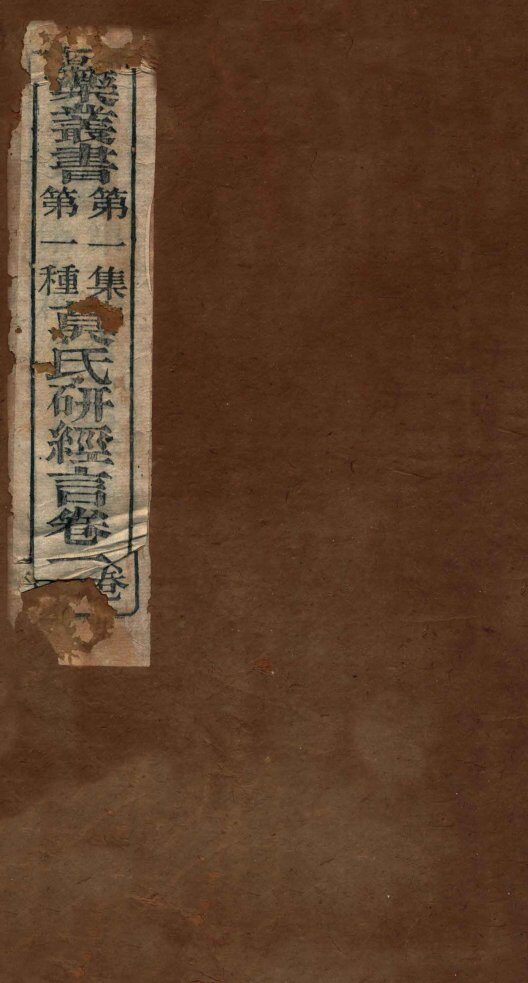 藥叢書
第一集
第一種
莫氏研經言卷一
卷